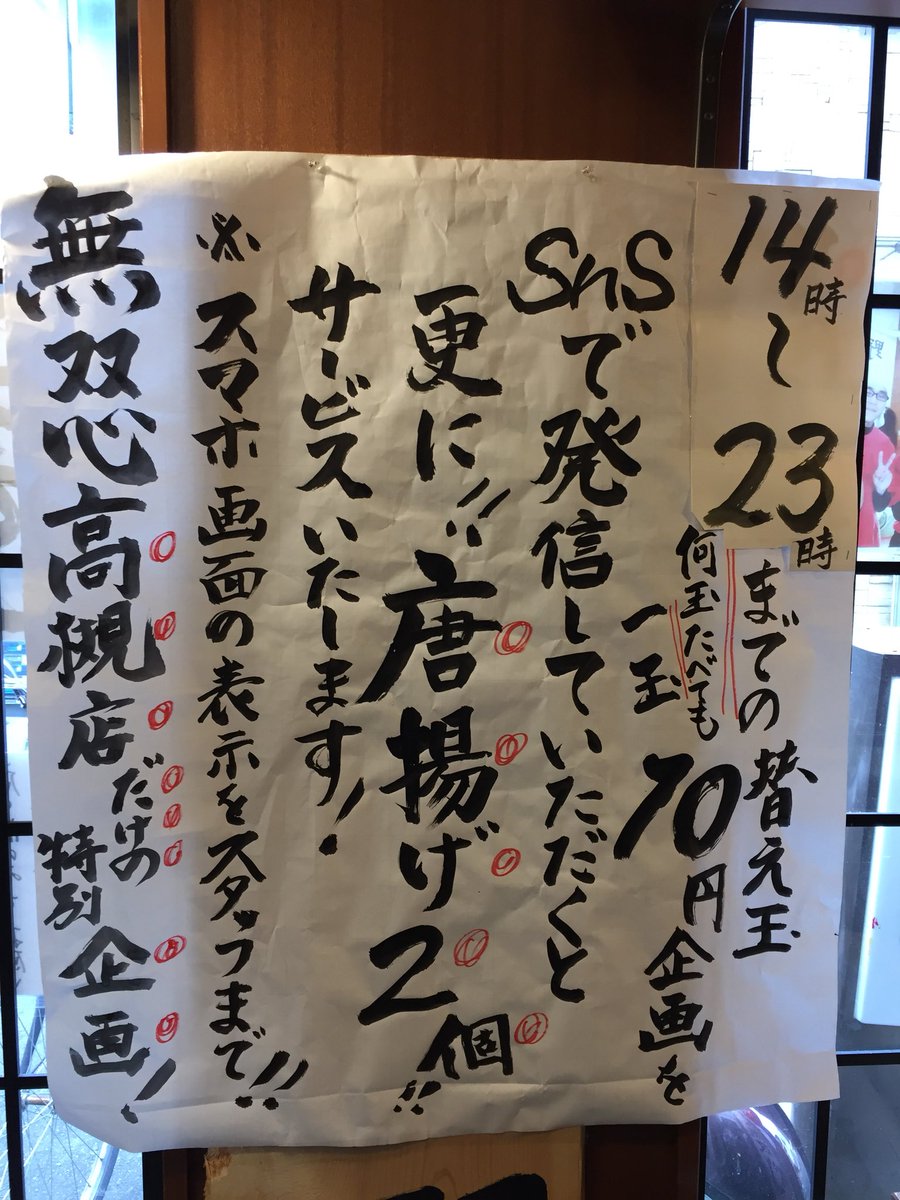 14時〜23時までの替え玉
何玉たべても
一玉70円企画を
SnSで発信していただくと
更に!!唐揚げ2個!!
サービスいたします!
※スマホ画面の表示をスタッフまで!!
無双心高槻店だけの特別企画!